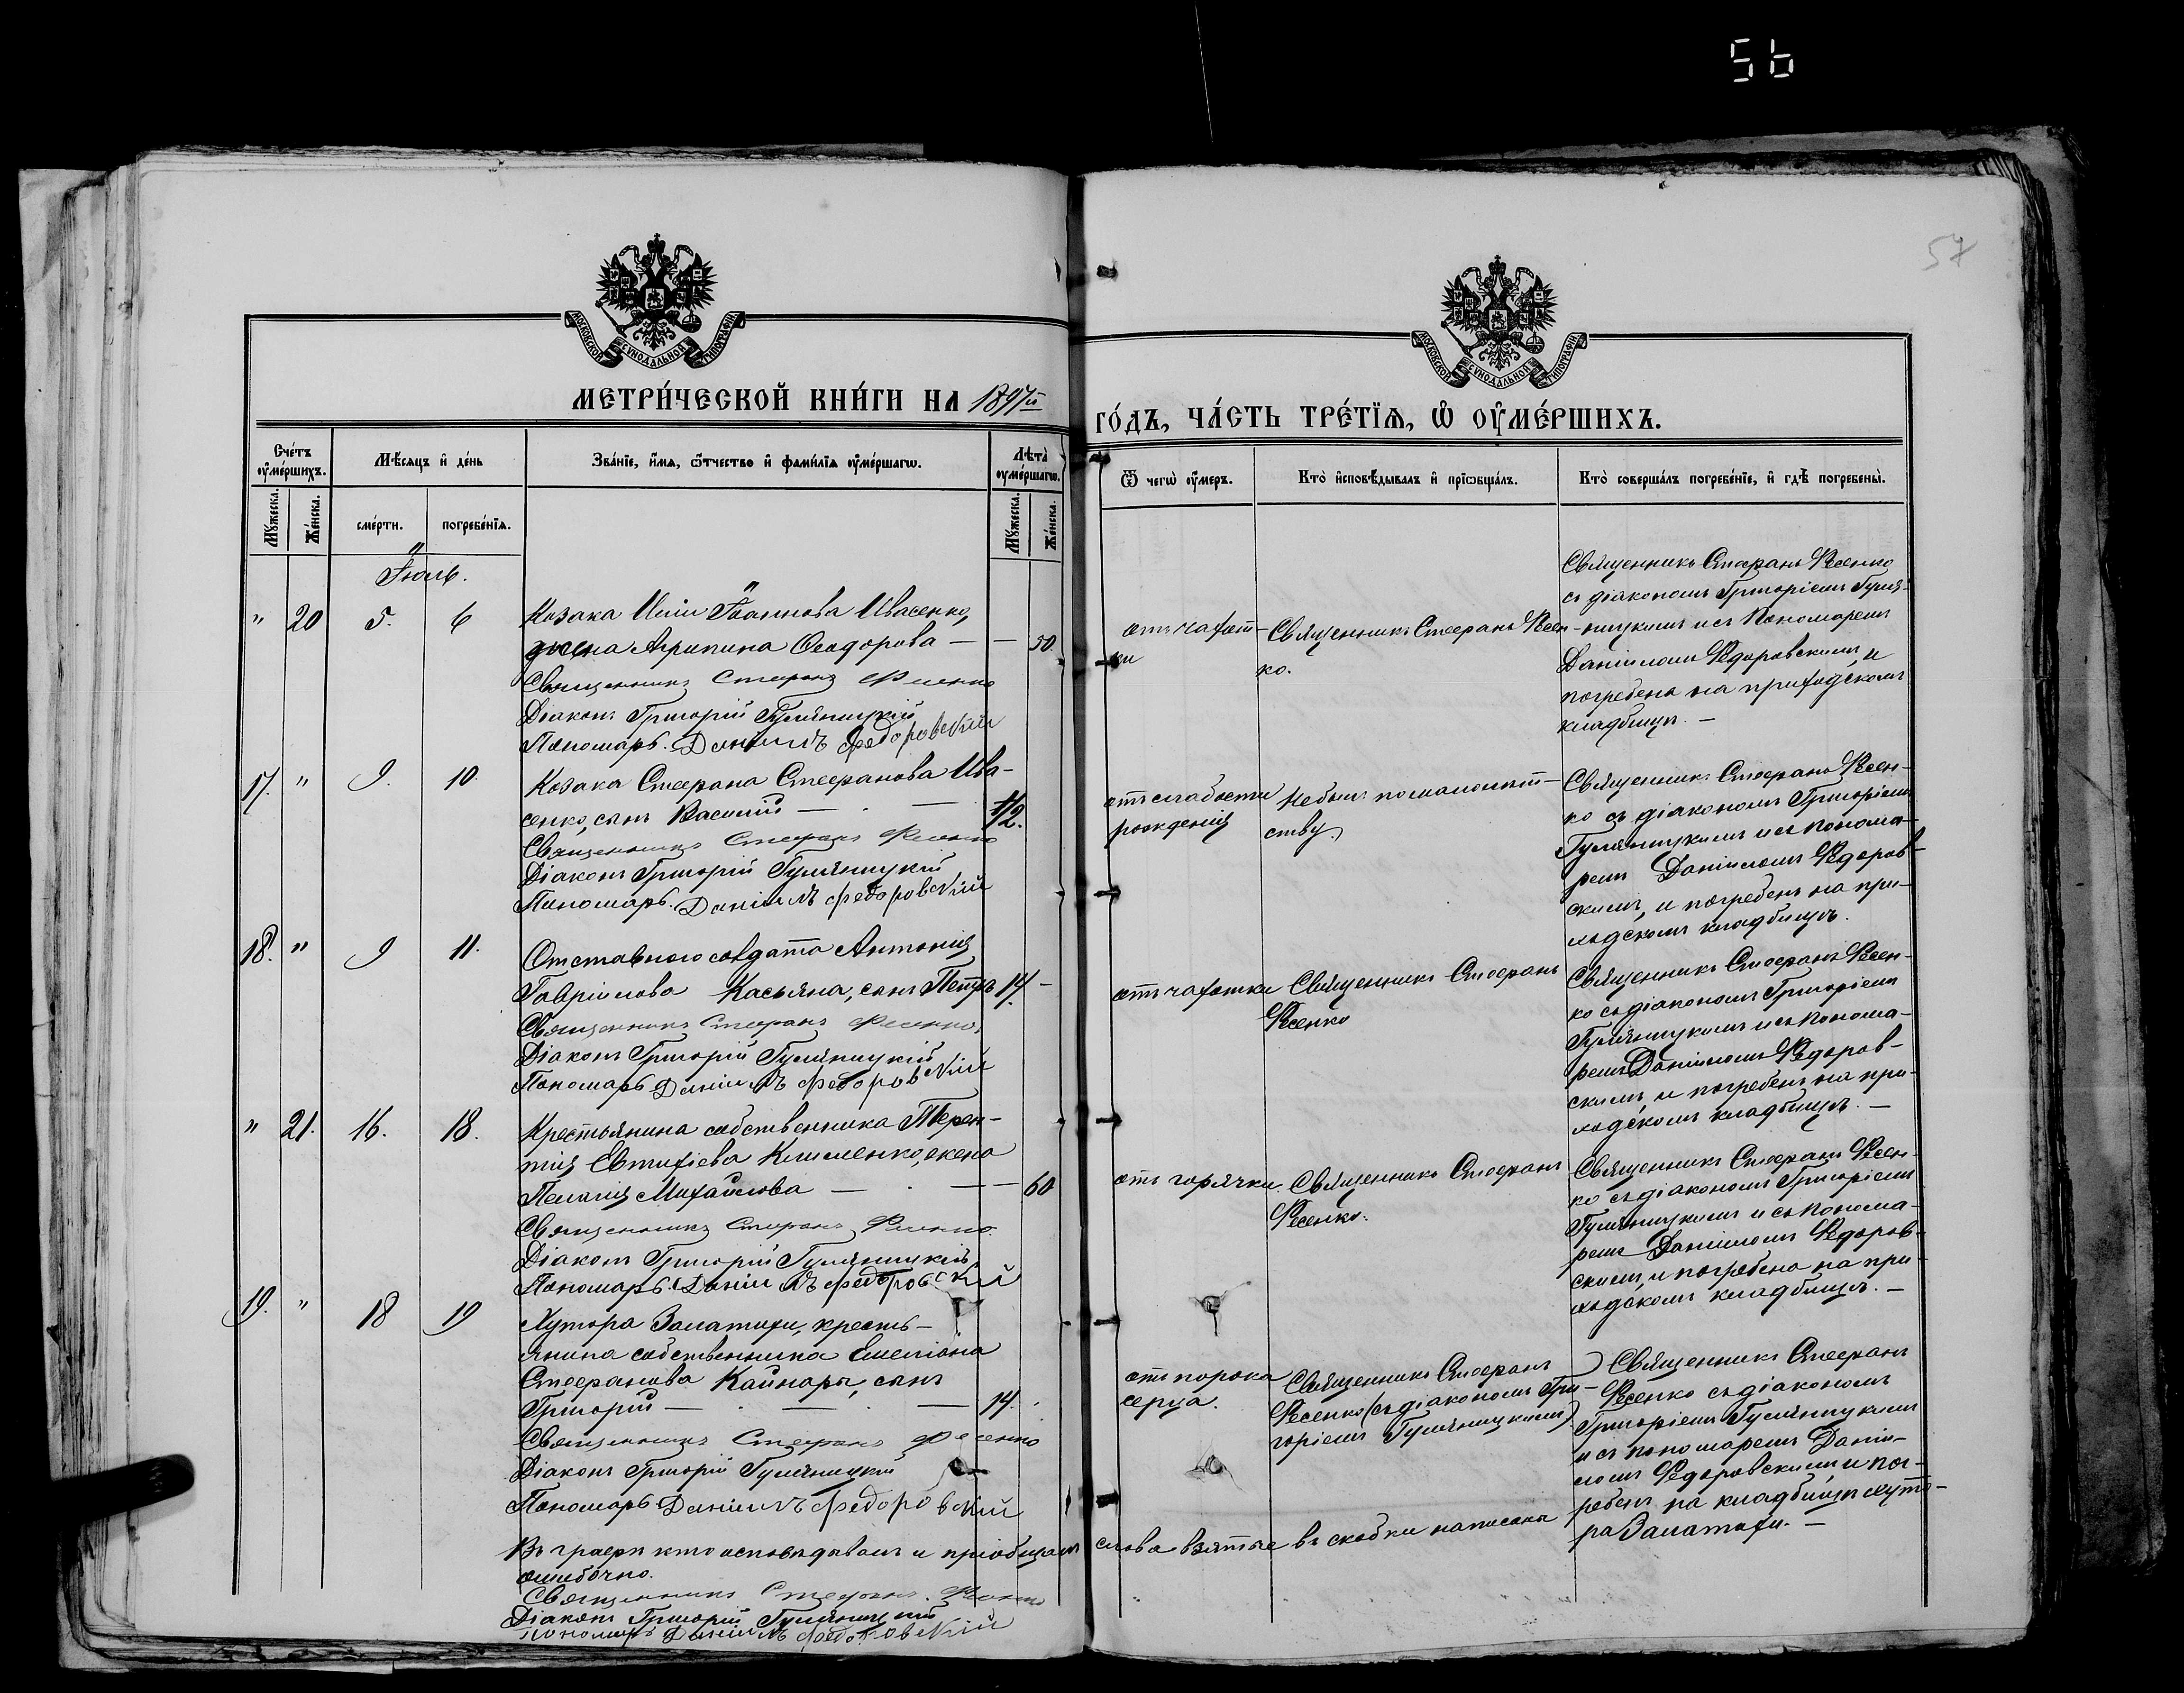 56
57
МОСКОВСКОЙ СУНОДАЛЬНОЙ ТИПОГРАФІИ
МОСКОВСКОЙ СУНОДАЛЬНОЙ ТИПОГРАФІИ
МЕТРИ́ЧЕСКОЙ КНИ́ГИ НА 1897й
ГО́ДЪ, ЧА́СТЬ ТРЕ́ТЇѦ, Ѡ ОУ҆МЕ́РШИХЪ.
Сче́тъ оу҆ме́ршихъ.
Мꙋ́жеска.
Же́нска.
Мѣ́сяцъ и҆ де́нь
сме́рти.
погребе́нїѧ.
Зва́нїе, и҆́мѧ, ѻ҆́тчество и҆ фами́лїѧ оу҆ме́ршагѡ.
Лѣ́та оу҆ме́ршагѡ.
Мꙋ́жеска.
Же́нска.
Ѿ чегѡ̀ оу҆́меръ.
Кто̀ и҆сповѣ́дывалъ и҆ прїѡбща́лъ.
Кто̀ соверша́лъ погребе́нїе, и҆ гдѣ̀ погребены̀.
Іюль.
" 20 5. 6
Козака Иліи Іоаннова Ивасенко,
жена Агрипина Ѳеодорова — — 50.
Священникъ Стефанъ Фесенко
Діаконъ Григорій Гуляницкій
Пономарь Даніилъ Федоровскій
отъ чахот-
ки
Священникъ Стефанъ Фесен-
ко.
Священникъ Стефанъ Фесенко
съ діакономъ Григоріемъ Гуля-
ницкимъ и съ Пономаремъ
Даніиломъ Федоровскимъ, и
погребена на приходскомъ
кладбищѣ. —
17. " 9. 10.
Козака Стефана Стефанова Ива-
сенко, сынъ Василій — 1/2.
Священникъ Стефанъ Фесенко
Діаконъ Григорій Гуляницкій
Пономарь Даніилъ Федоровскій
отъ слабости
рожденія
Не былъ по малолѣт-
ству
Священникъ Стефанъ Фесен-
ко съ діакономъ Григоріемъ
Гуляницкимъ и съ понома-
ремъ Даніиломъ Федоров-
скимъ, и погребенъ на при-
ходскомъ кладбищѣ.
18. " 9 11.
Отставного солдата Антонія
Гавріилова Касьяна, сынъ Петръ 14. —
Священникъ Стефанъ Фесенко
Діаконъ Григорій Гуляницкій
Пономарь Даніилъ Федоровскій
отъ чахотки
Священникъ Стефанъ
Фесенко
Священникъ Стефанъ Фесен-
ко съ діакономъ Григоріемъ
Гуляницкимъ и съ понома-
ремъ Даніиломъ Федоров-
скимъ, и погребенъ на при-
ходскомъ кладбищѣ. —
" 21. 16. 18.
Крестьянина собственника Терен-
тія Евтихіева Клименко, жена
Пелагія Михайлова — — 60
Священникъ Стефанъ Фесенко
Діаконъ Григорій Гуляницкій
Пономарь Даніилъ Федоровскій
отъ горячки.
Священникъ Стефанъ
Фесенко.
Священникъ Стефанъ Фесен-
ко съ діакономъ Григоріемъ
Гуляницкимъ и съ понома-
ремъ Даніиломъ Федоров-
скимъ, и погребена на при-
ходскомъ кладбищѣ. —
19. " 18 19
Хутора Заматихи, кресть-
янина собственника Емеліана
Стефанова Кайнары, сынъ
Григорій — — — 14.
Священникъ Стефанъ Фесенко
Діаконъ Григорій Гуляницкій
Пономарь Даніилъ Федоровскій
отъ порока
серца.
Священникъ Стефанъ
Фесенко (съ діакономъ Гри-
горіемъ Гуляницкимъ)
Священникъ Стефанъ
Фесенко съ діакономъ
Григоріемъ Гуляницкимъ
и съ пономаремъ Даніи-
ломъ Федоровскимъ и пог-
ребенъ на кладбищѣ хуто-
ра Заматихи. —
Въ графѣ кто исповѣдывалъ и пріобщалъ слова взятые въ скобки написаны
ошибочно.
Священникъ Стефанъ Фесенко
Діаконъ Григорій Гуляницкій
Пономарь Даніилъ Федоровскій